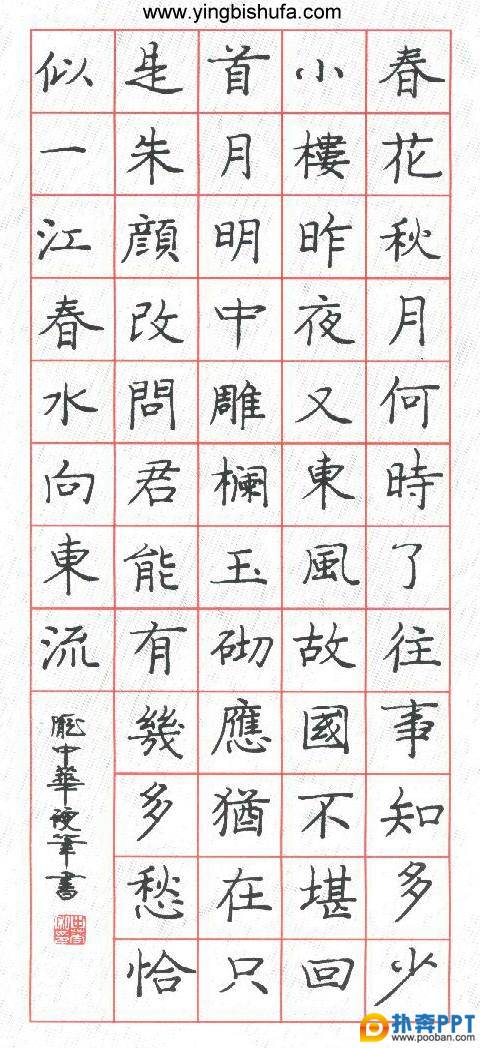 www.yingbishufa.com
春花秋月何時了往事知多少
小樓昨夜又東風故國不堪回
首月明中雕欄玉砌應猶在只
是朱顔改問君能有幾多愁恰
似一江春水向東流
龐中華硬筆書
扑奔PPT
www.pooban.com